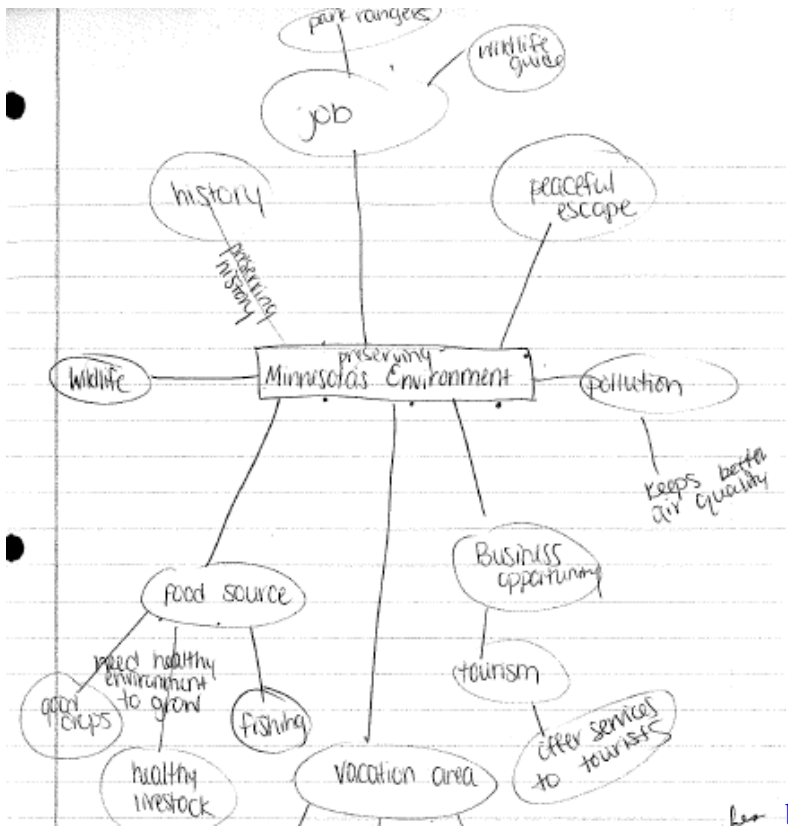 park rangers
wildlife
guide
job
history
peaceful
escape
preserving
history
preserving
Minnisota's Environment
Wildlife
pollution
keeps better
air quality
Business
opportunity
food source
need healthy
environment
to grow
good
crops
fishing
tourism
offer services
to tourists
healthy
livestock
vacation area